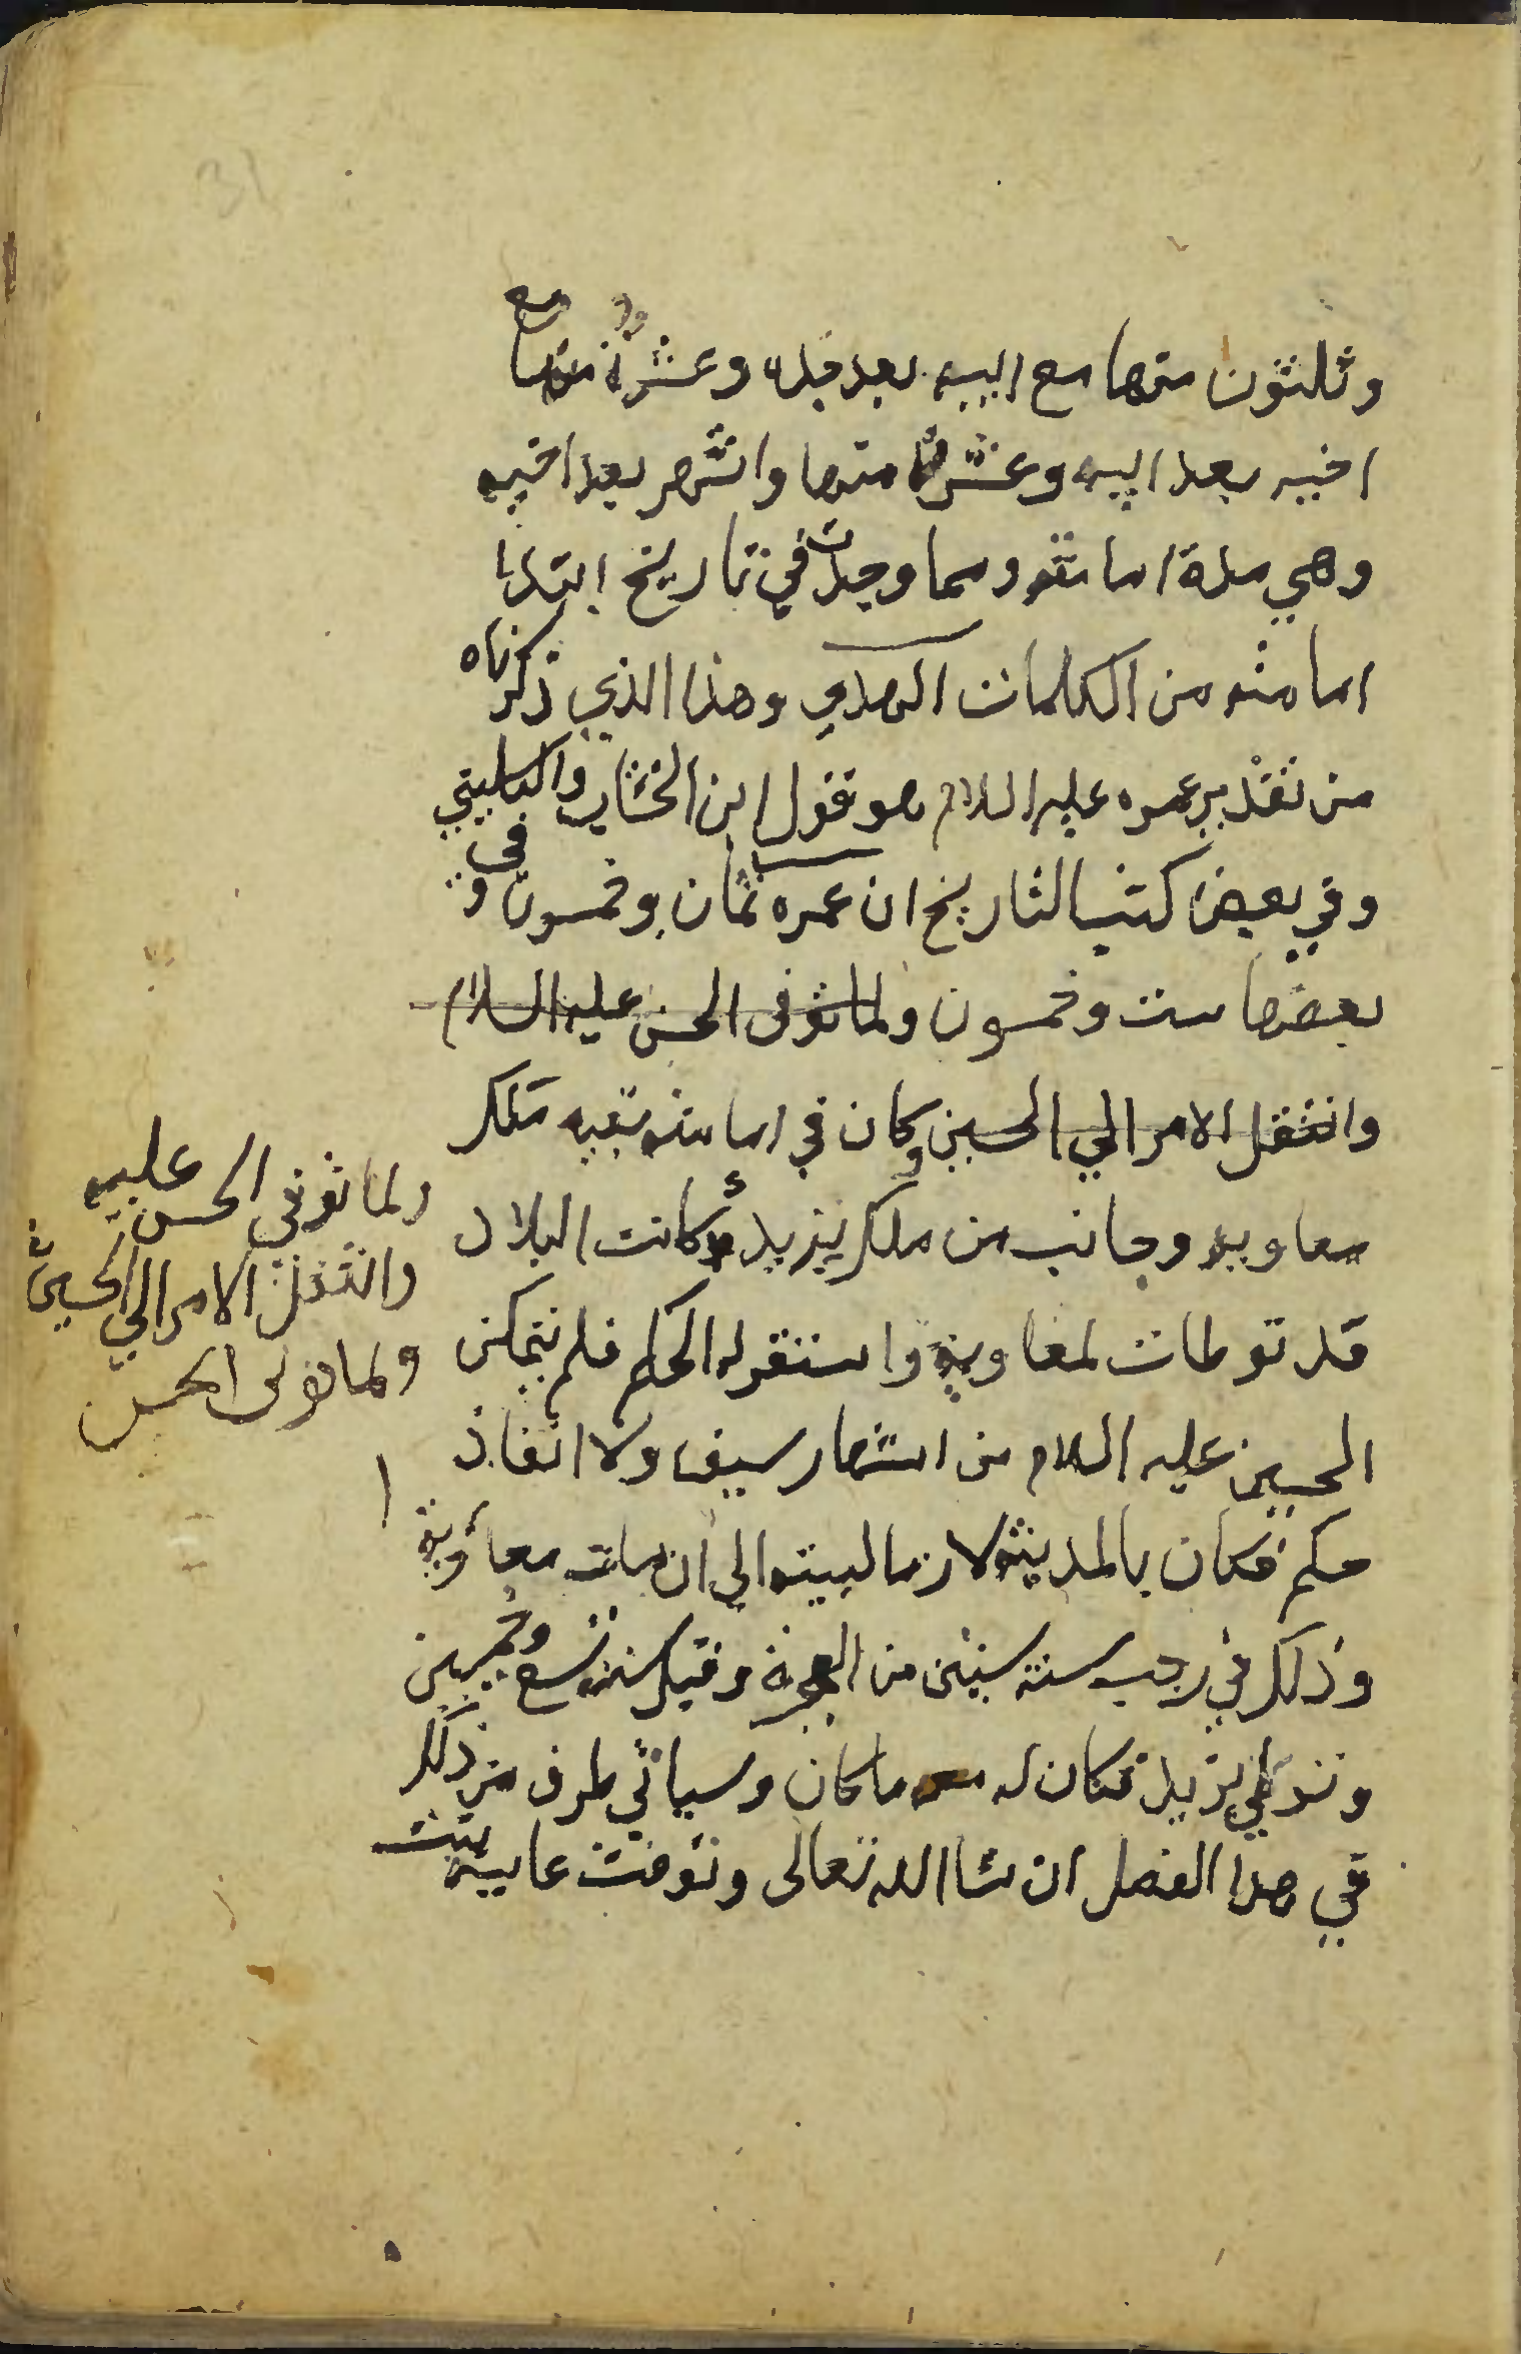 وثلثون منها مع ابيه بعد جده وعشرة منها مع
اخيه بعد ابيه وعشر منها واشهر بعد اخيه
وهي مدة امامته ومما وجدت في تاريخ ابتدا
امامته من الكلمات الهدي وهذا الذي ذكرناه
من تقدير عمره عليه السلام هو قول ابن الخشاب والكليني
وفي بعض كتب التاريخ ان عمره ثمان وخمسون وفي
بعضها ست وخمسون ولما توفى الحسن عليه السلام
وانتقل الامر الي الحسين وكان في امامته بقيه ملك
معاويه وجانب من ملك يزيد وكانت البلاد
قد توطات لمعاوية واستقر له الحكم فلم يتمكن
الحسين عليه السلام من اشهار سيف ولا انفاذ
حكم فكان بالمدينة لازما لبيته الي ان مات معاوية
وذلك في رجب سنة ستين من الهجرة وقيل سنة تسع وخمسين
وتولي يزيد فكان له معه ما كان وسياتي طرف من ذلك
في هذا الفصل ان شا الله تعالى وتوفت عايشة بنت
ولما توفي الحسن عليه
وانتقل الامر الي الحسين
ولما توفى الحسن